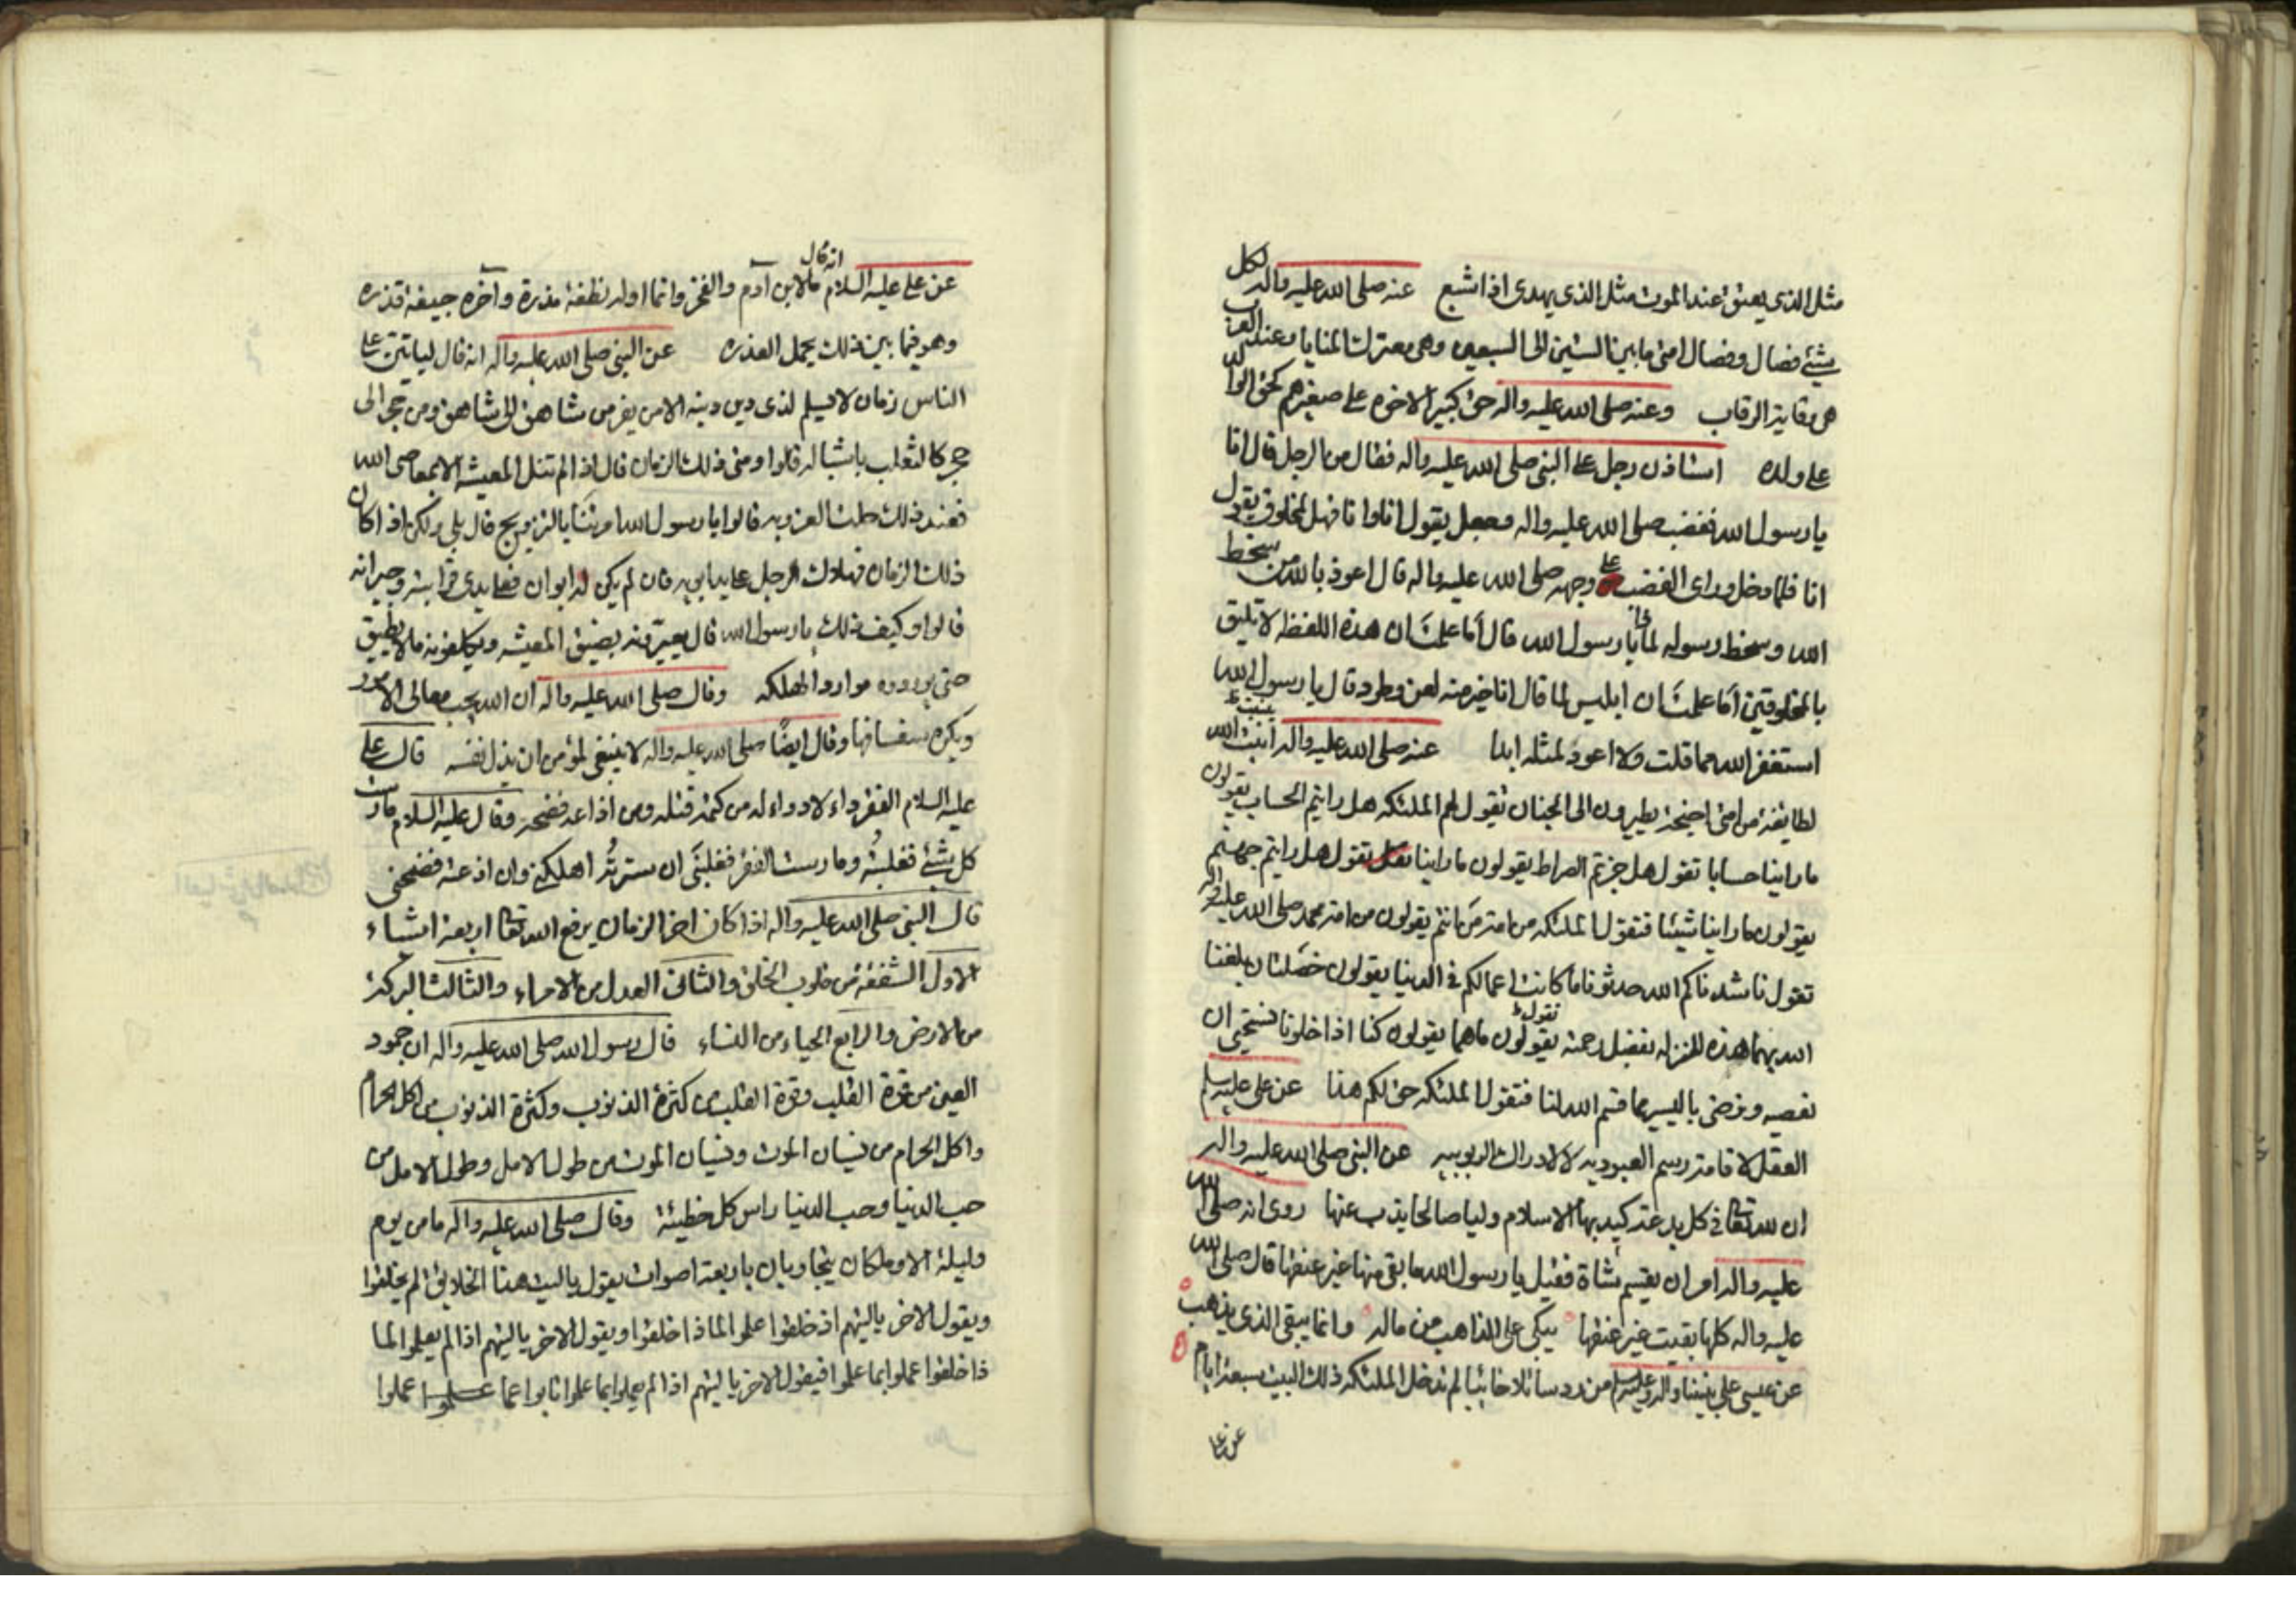 مثل الذي يعتق عند الموت مثل الذي يهدى اذا شبع عنه صلى الله عليه واله لكل
شئ فصال وفصال امتى ما بين الستين الى السبعين وهي معترك المنايا وعنده
هي وقاية الرقاب وعنه صلى الله عليه واله حق كبير الاخوه على صغيرهم كحق الوالد
على ولده استاذن رجل على النبي صلى الله عليه واله فقال من الرجل قال انا
يا رسول الله فغضب صلى الله عليه واله وجعل يقول انا وانا فهل لمخلوق يقول
انا فلما دخل وراى الغضب على وجهه صلى الله عليه واله قال اعوذ بالله من سخط
الله وسخط رسوله يا رسول الله قال أما علمت ان هذه اللفظه لا تليق
بالمخلوقين أما علمت ان ابليس لما قال انا خير منه لعن وطرد قال يا رسول الله
استغفر الله مما قلت ولا اعود لمثله ابدا عنه صلى الله عليه واله انبت الله
لطايفة من امتى اجنحة يطيرون الى الجنان تقول لهم الملئكه هل رايتم الحساب يقولون
ما راينا حسابا تقول هل جزتم الصراط يقولون ما راينا تقول هل رايتم جهنم
يقولون ما راينا شيئا فتقول الملئكه من امة من انتم يقولون من امة محمد صلى الله عليه واله
تقول ناشدناكم الله حدثونا ما كانت اعمالكم في الدنيا يقولون خصلتان بلغنا
الله بهما هذه المنزله بفضل رحمته تقول وما هما يقولون كنا اذا خلونا نستحيى ان
نعصيه ونرضى باليسير مما قسم الله لنا فتقول الملئكه حق لكم هذا عن علي عليه السلم
العقل لاقامة رسم العبوديه لا لادراك الربوبيه عن النبي صلى الله عليه واله
ان لله تعالى في كل بدعة كيد بها الاسلام وليا صالحا يذب عنها روى انه صلى الله
عليه واله امر ان يقسم شاة فقيل يا رسول الله ما بقى منها غير عنقها قال صلى الله
عليه واله كلها بقيت غير عنقها يبكى على الذاهب من ماله وانما يبقى الذي يذهب
عن عيسى على نبينا واله وعليه السلم من رد سائلا خائبا لم تدخل الملئكه ذلك البيت سبعة ايام
عن علي
عن علي عليه السلام انه قال ما لابن آدم والفخر وانما اوله نطفة مذرة وآخره جيفة قذره
وهو فيما بين ذلك يحمل العذره عن النبي صلى الله عليه واله انه قال لياتين على
الناس زمان لا يسلم لذى دين دينه الا من يفر من شاهق الى شاهق ومن حجر الى
حجر كالثعلب باشباله قالوا ومتى ذلك الزمان قال اذا لم تنل المعيشه الا بمعاصى الله
فعند ذلك حلت العزوبه قالوا يا رسول الله امرتنا بالتزويج قال بلى ولكن اذا كان
ذلك الزمان فهلاك الرجل على يد ابويه فان لم يكن له ابوان فعلى يدى قرابته وجيرانه
قالوا وكيف ذلك يا رسول الله قال يعيرونه بضيق المعيشه ويكلفونه ما لا يطيق
حتى يوردوه موارد الهلكه وقال صلى الله عليه واله ان الله يحب معالى الامور
ويكره سفسافها وقال ايضًا صلى الله عليه واله لا ينبغى لمؤمن ان يذل نفسه قال على
عليه السلام الفقر داء لا دواء له من كتمه قتله ومن اذاعه فضحه وقال عليه السلام مارست
كل شئ فغلبته ومارست الفقر فغلبنى ان سترته اهلكنى وان اذعته فضحنى
قال النبي صلى الله عليه واله اذا كان اخر الزمان يرفع الله تعالى اربعة اشياء
الاول الشفقة من قلوب الخلق والثانى العدل من الامراء والثالث البركة
من الارض والرابع الحياء من النساء قال رسول الله صلى الله عليه واله ان جمود
العين من قسوة القلب وقسوة القلب من كثرة الذنوب وكثرة الذنوب من اكل الحرام
واكل الحرام من نسيان الموت ونسيان الموت من طول الامل وطول الامل من
حب الدنيا وحب الدنيا راس كل خطيئة وقال صلى الله عليه واله ما من يوم
وليلة الا وملكان يتجاوبان باربعة اصوات يقول ياليت هذا الخلايق لم يخلقوا
ويقول الاخر ياليتهم اذ خلقوا علموا لماذا خلقوا ويقول الاخر ياليتهم اذا لم يعلموا لما
ذا خلقوا عملوا بما علموا فيقول الاخر ياليتهم اذا لم يعملوا بما علموا تابوا عما عملوا